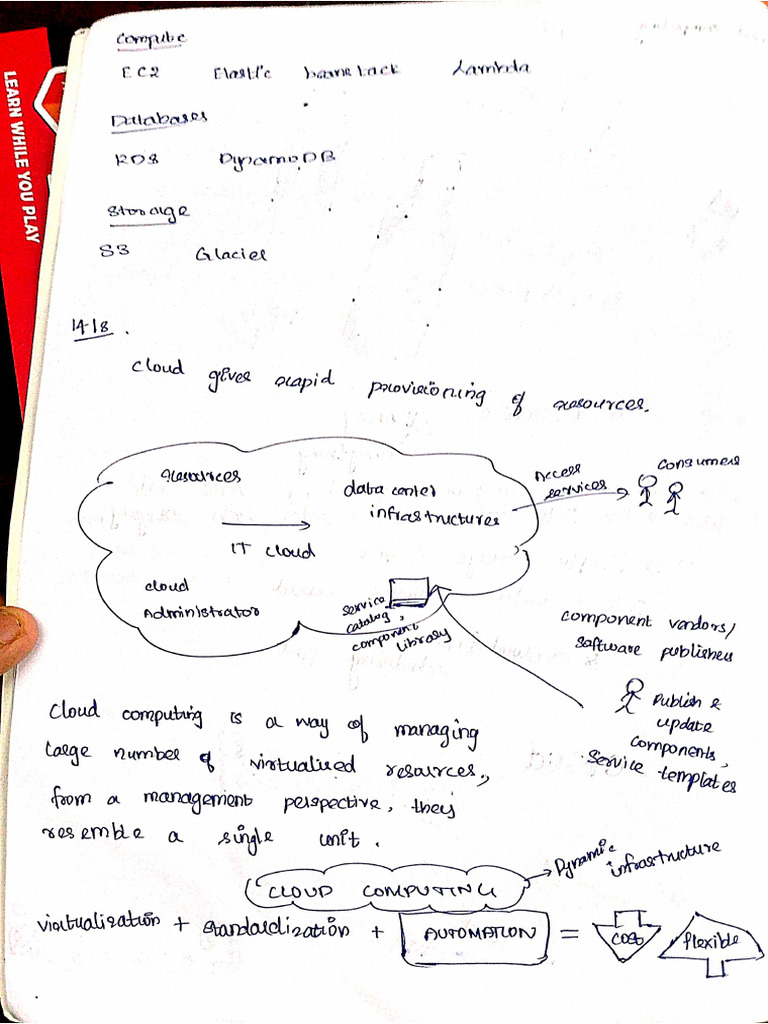 LEARN WHILE YOU PLAY
Compute
EC2 Elastic beanstack Lambda
Databases
RDS DynamoDB
Storage
S3 Glacier
14-18.
Cloud gives rapid provisioning of resources.
Resources
data center
infrastructures
IT cloud
cloud
Administrator
service
catalog,
component
library
Access
services
Consumers
component vendors/
software publishers
Publish &
update
components,
service templates
Cloud computing is a way of managing
large number of virtualised resources.,
from a management perspective, they
resemble a single unit.
CLOUD COMPUTING
Dynamic
infrastructure
virtualization + standardization + AUTOMATION = cost flexible